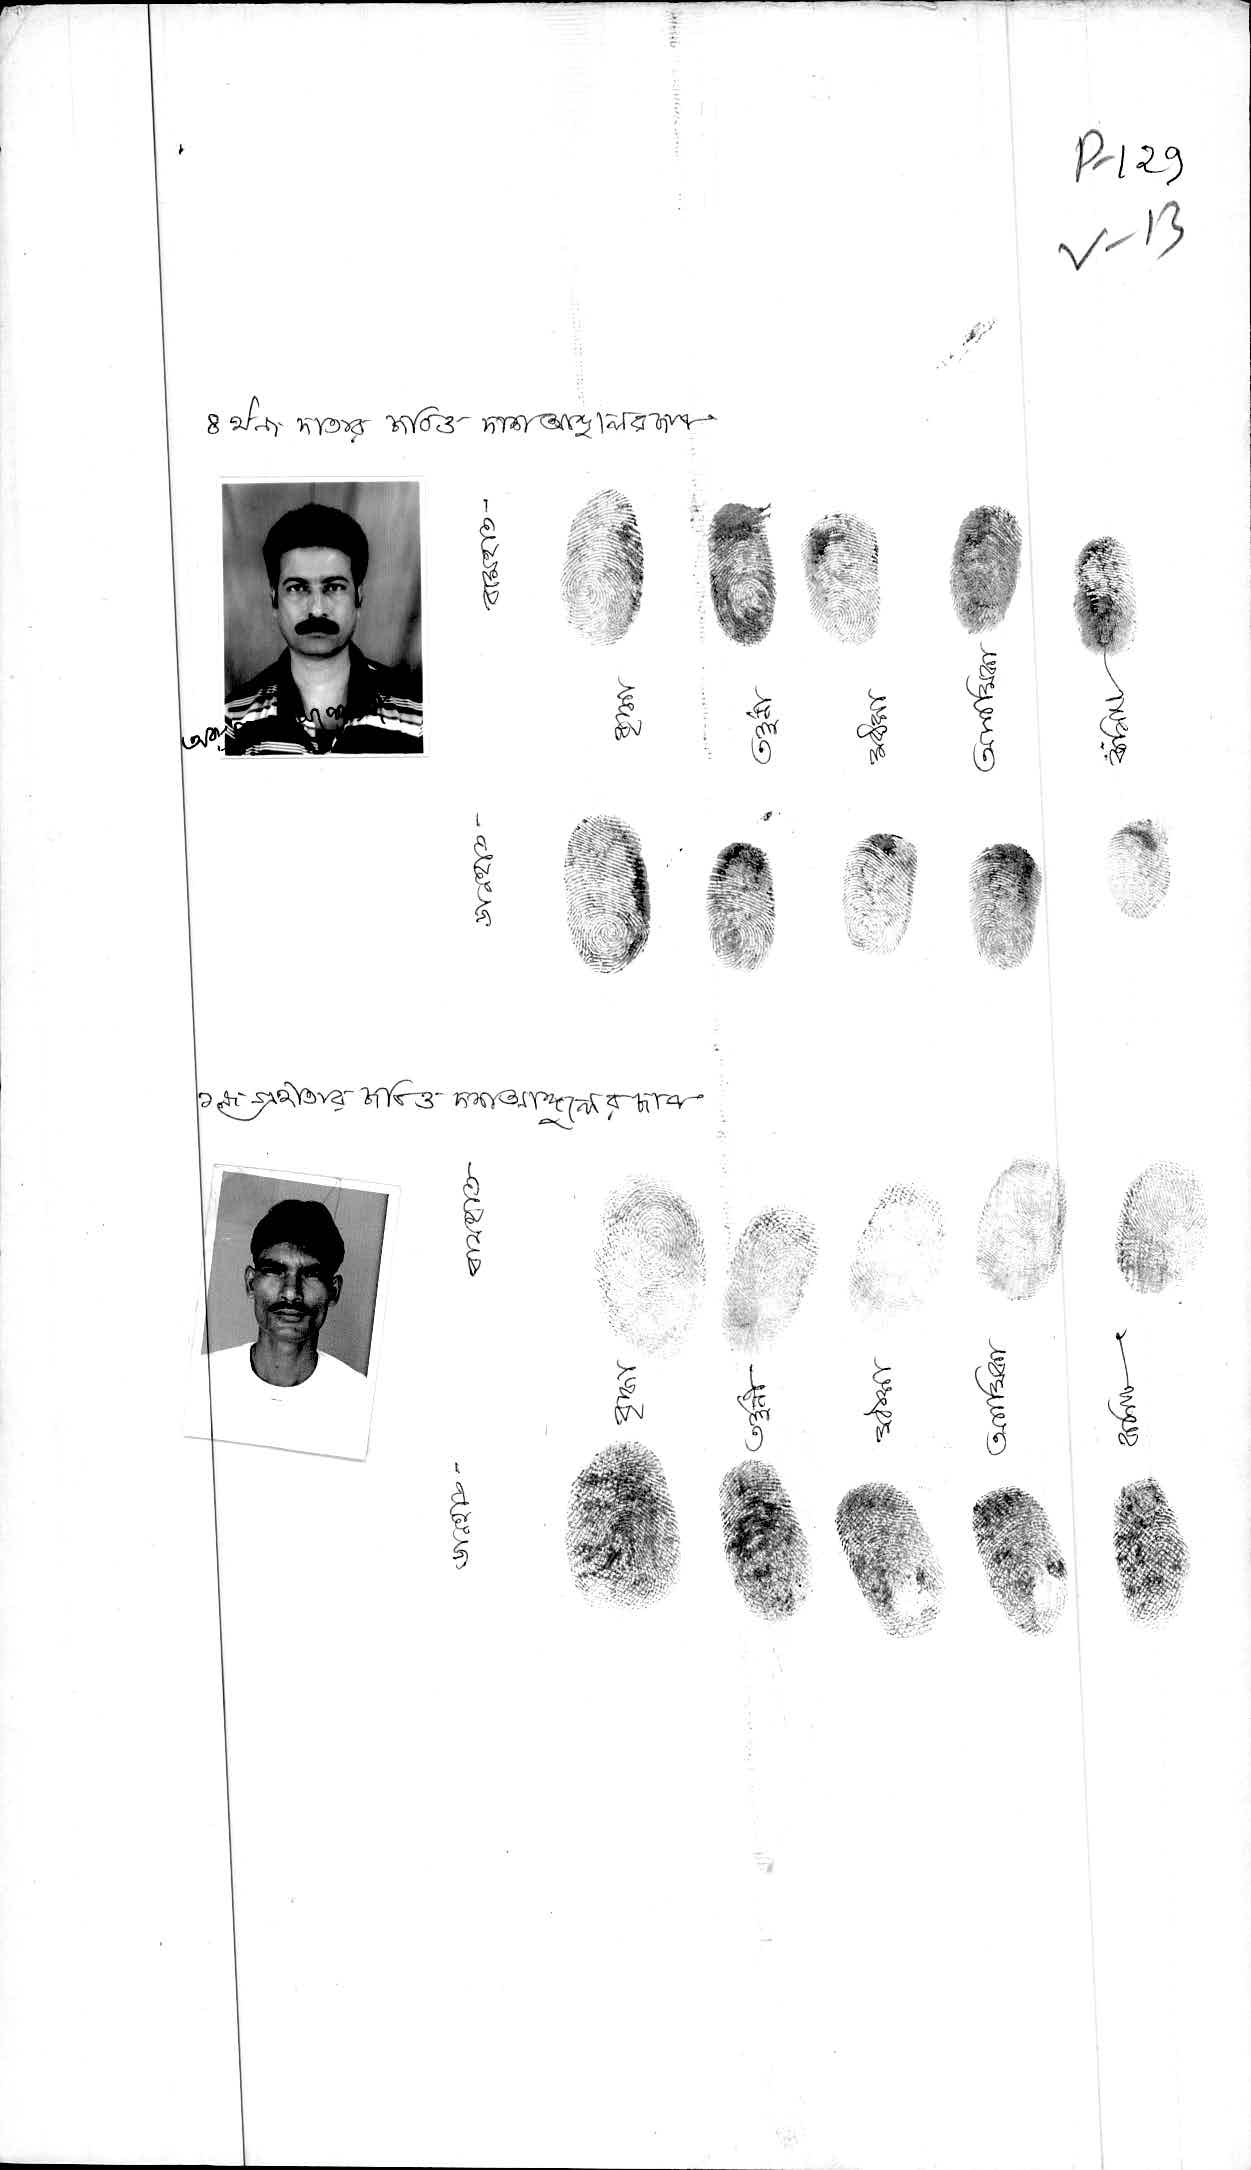 P-129
V-13
৪ র্থনং দাতার সচিত্র দশ আঙ্গুলের ছাপ
বামহাত-
বৃদ্ধা
তর্জনী
মধ্যমা
অনামিকা
কনিষ্ঠা
ডানহাত-
১নং গ্রহীতার সচিত্র দশ আঙ্গুলের ছাপ
বামহাত-
বৃদ্ধা
তর্জনী
মধ্যমা
অনামিকা
কনিষ্ঠা
ডানহাত-